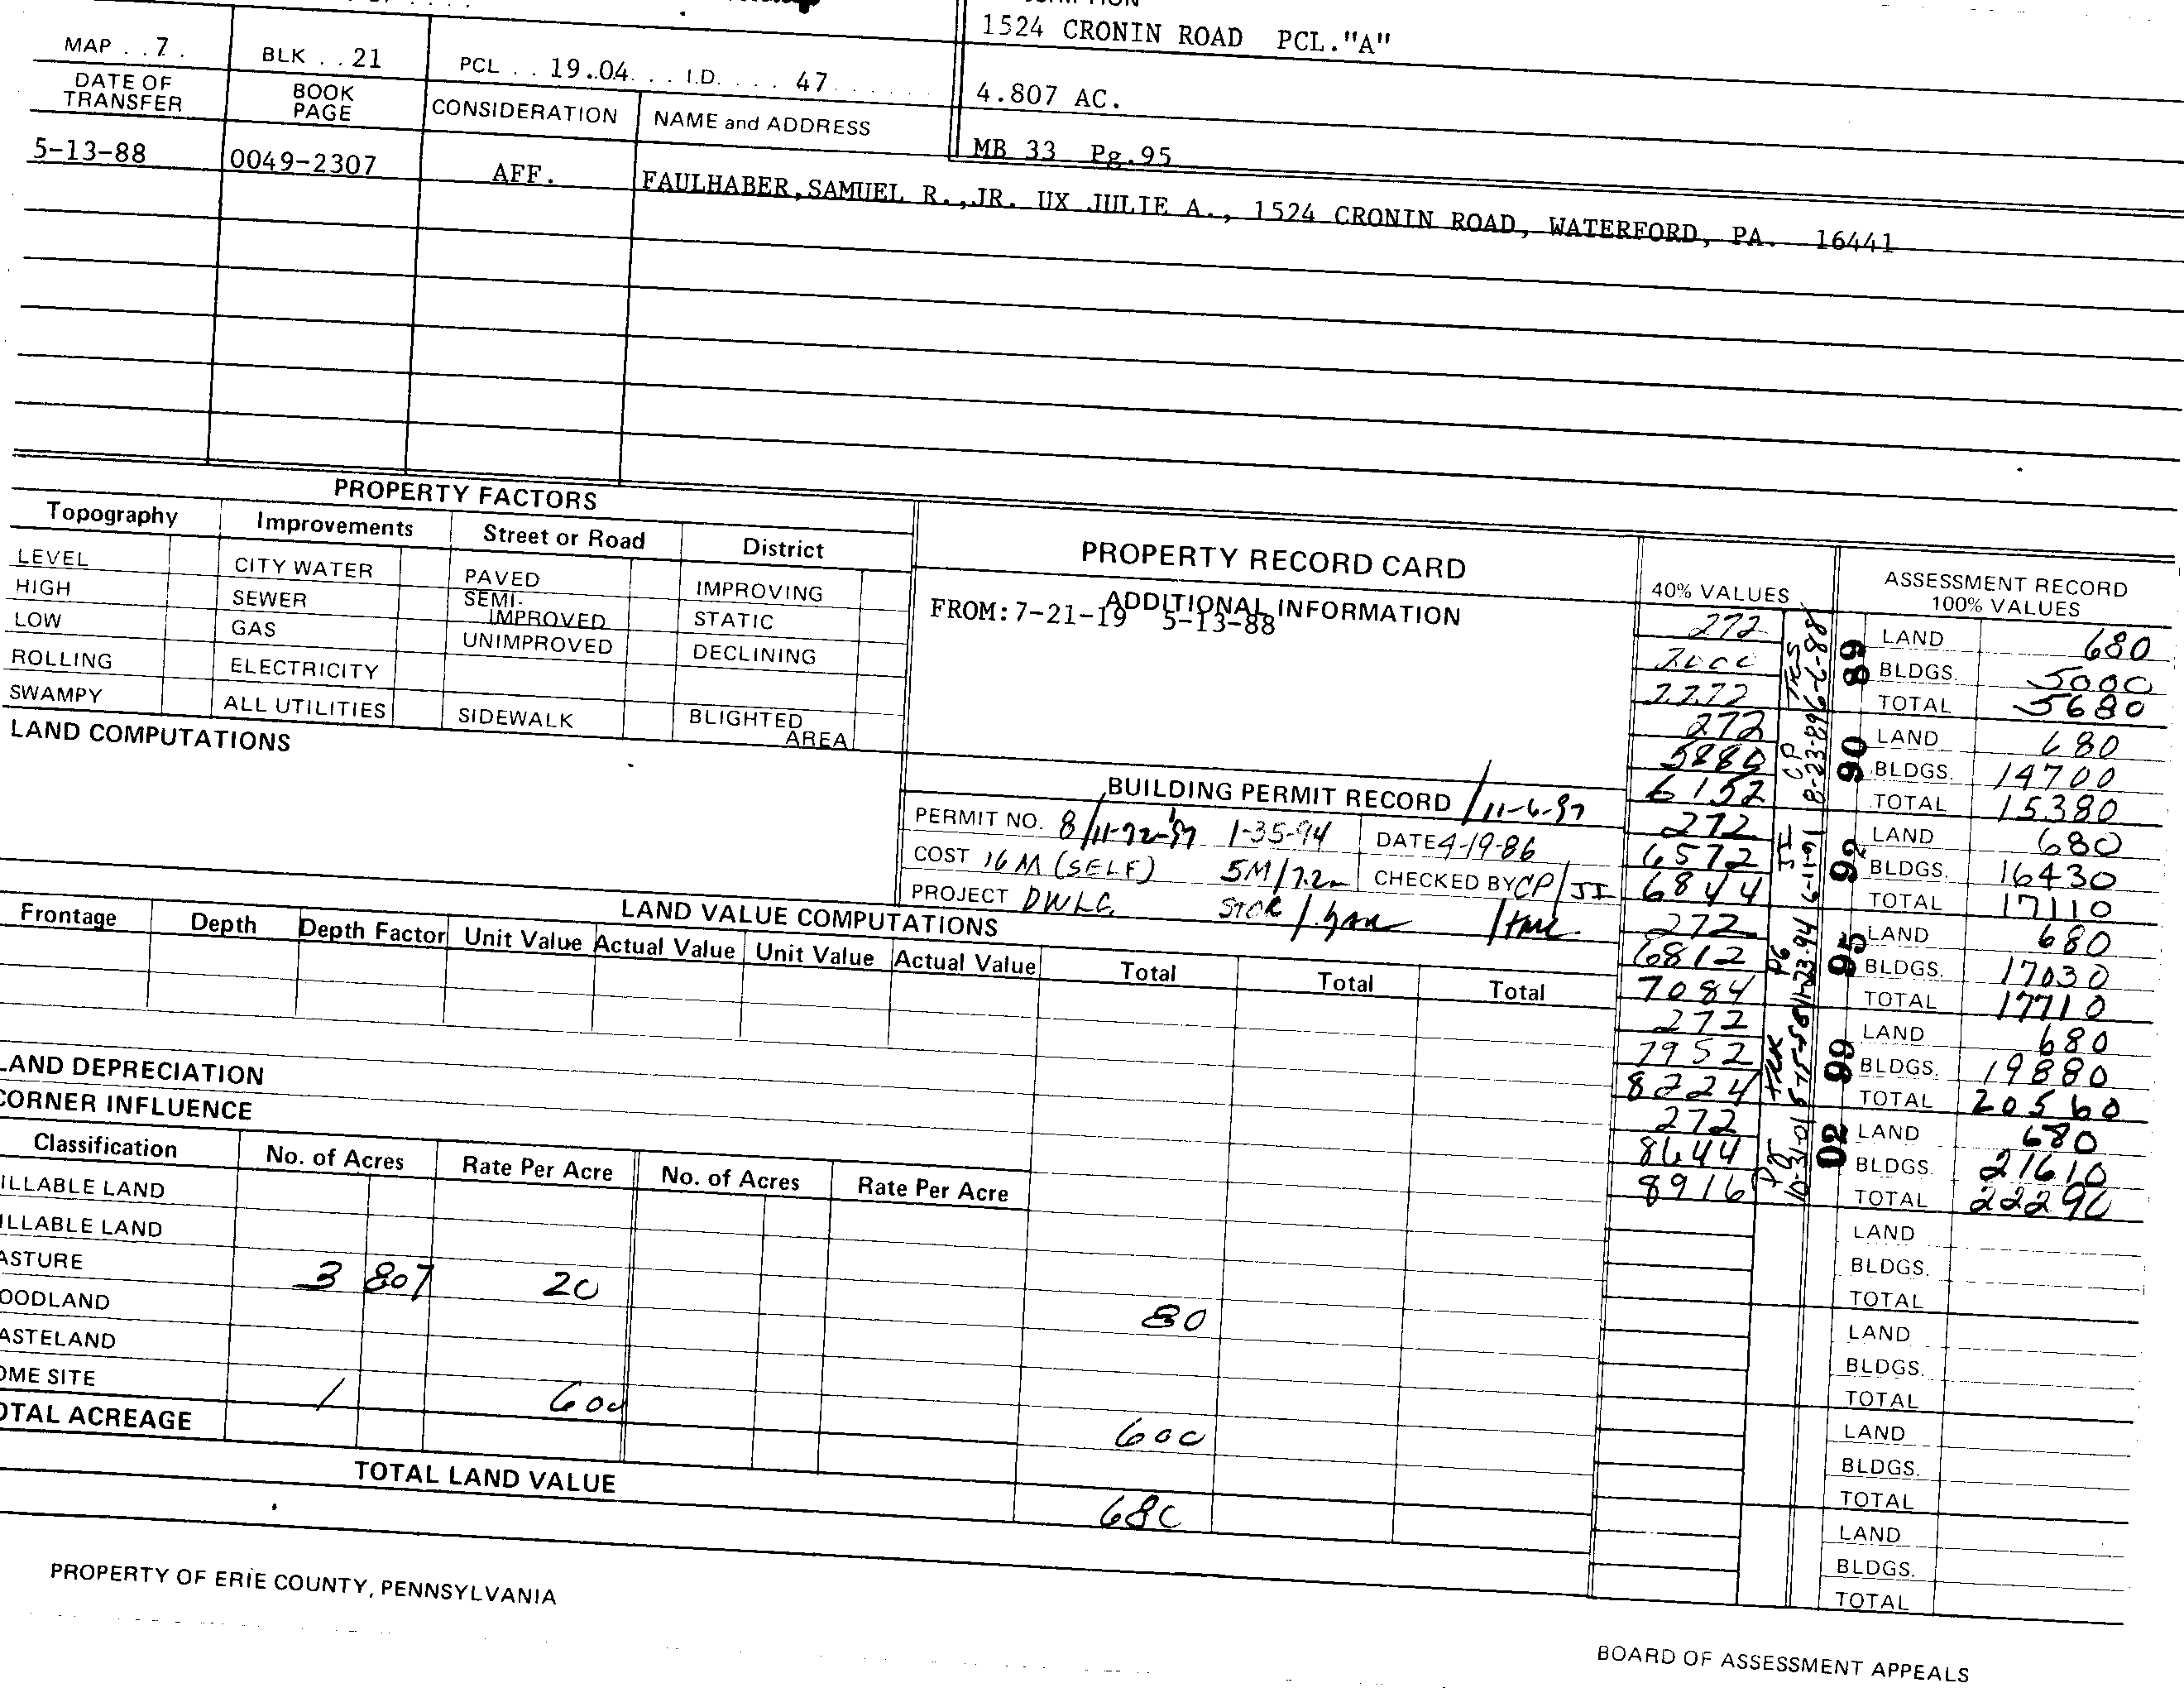 1524 CRONIN ROAD PCL."A"
MAP . . 7 . BLK . . 21 PCL . . 19.04 . . . I.D. . . . . 47 . . . . . .
4.807 AC.
DATE OF TRANSFER BOOK PAGE CONSIDERATION NAME and ADDRESS
MB 33 Pg.95
5-13-88 0049-2307 AFF. FAULHABER,SAMUEL R.,JR. UX JULIE A., 1524 CRONIN ROAD, WATERFORD, PA. 16441
PROPERTY FACTORS
Topography Improvements Street or Road District
LEVEL CITY WATER PAVED IMPROVING
HIGH SEWER SEMI-IMPROVED STATIC
LOW GAS UNIMPROVED DECLINING
ROLLING ELECTRICITY
SWAMPY ALL UTILITIES SIDEWALK BLIGHTED AREA
LAND COMPUTATIONS
PROPERTY RECORD CARD
ADDITIONAL INFORMATION
FROM:7-21-19 5-13-88
BUILDING PERMIT RECORD / 11-6-97
PERMIT NO. 8 / 11-72-97 1-35-94 DATE 4-19-86
COST 16 M (SELF) 5M/7.2m CHECKED BY CP/JI
PROJECT DWLG. STOR /
LAND VALUE COMPUTATIONS
Frontage Depth Depth Factor Unit Value Actual Value Unit Value Actual Value Total Total Total
LAND DEPRECIATION
CORNER INFLUENCE
Classification No. of Acres Rate Per Acre No. of Acres Rate Per Acre
ILLABLE LAND
ILLABLE LAND
ASTURE 3 807 20 80
OODLAND
ASTELAND
OME SITE 1 600 600
OTAL ACREAGE
TOTAL LAND VALUE 680
40% VALUES
272
2000
2272
272
5880
6152
272
6572
6844
272
6812
7084
272
7952
8224
272
8644
8916
6-7-88
CP 8-23-89
JI 6-11-91
PG 11-23-94
10-31-01
ASSESSMENT RECORD
100% VALUES
89 LAND 680
BLDGS. 5000
TOTAL 5680
90 LAND 680
BLDGS. 14700
TOTAL 15380
92 LAND 680
BLDGS. 16430
TOTAL 17110
95 LAND 680
BLDGS. 17030
TOTAL 17710
99 LAND 680
BLDGS. 19880
TOTAL 20560
02 LAND 680
BLDGS. 21610
TOTAL 22290
LAND
BLDGS.
TOTAL
LAND
BLDGS.
TOTAL
LAND
BLDGS.
TOTAL
LAND
BLDGS.
TOTAL
PROPERTY OF ERIE COUNTY, PENNSYLVANIA
BOARD OF ASSESSMENT APPEALS